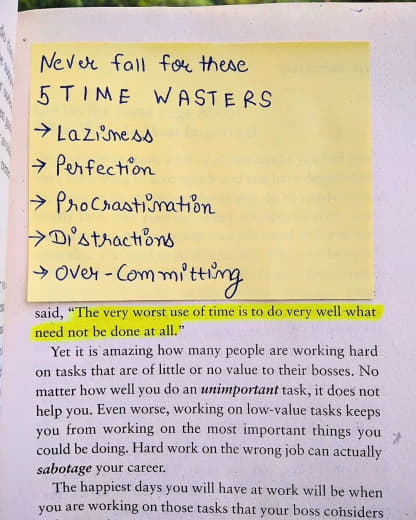 Never fall for these
5 TIME WASTERS
→ Laziness
→ Perfection
→ Procrastination
→ Distractions
→ Over-Committing
said, “The very worst use of time is to do very well what
need not be done at all.”
Yet it is amazing how many people are working hard
on tasks that are of little or no value to their bosses. No
matter how well you do an unimportant task, it does not
help you. Even worse, working on low-value tasks keeps
you from working on the most important things you
could be doing. Hard work on the wrong job can actually
sabotage your career.
The happiest days you will have at work will be when
you are working on those tasks that your boss considers